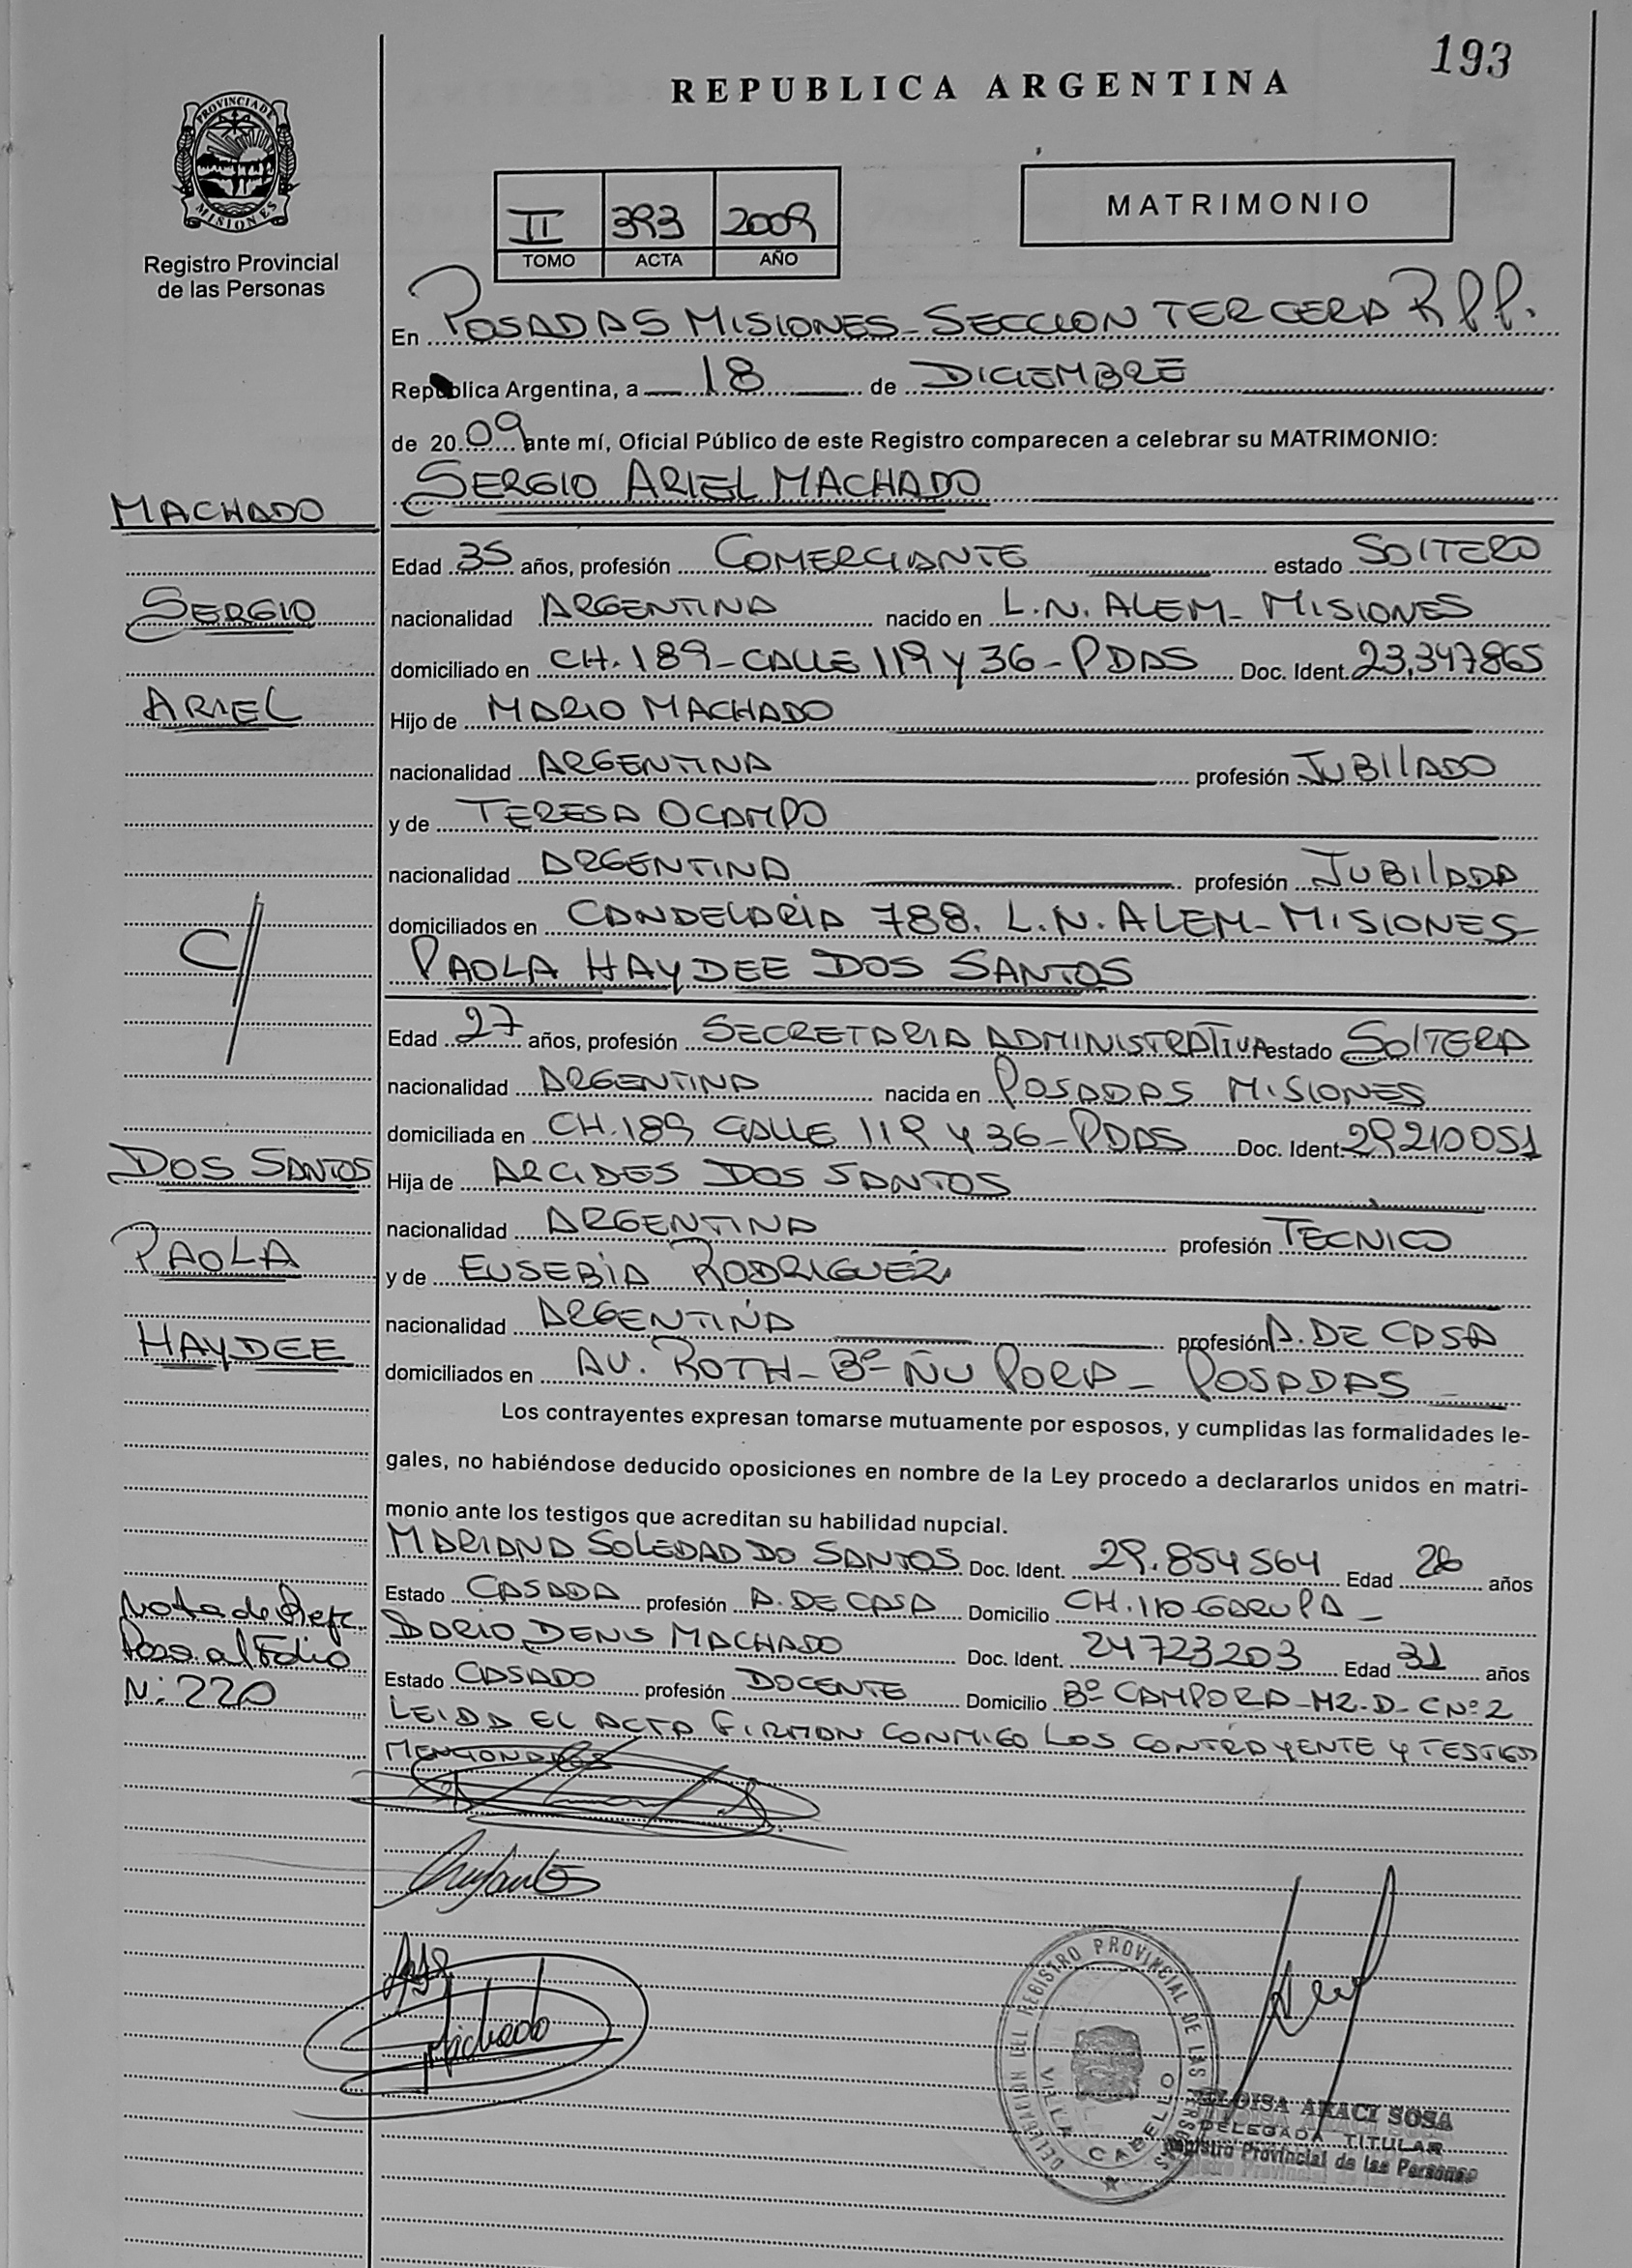 193
REPUBLICA ARGENTINA
PROVINCIA DE MISIONES
Registro Provincial
de las Personas
II 393 2009
TOMO ACTA AÑO
MATRIMONIO
En POSADAS MISIONES - SECCION TERCERA R.P.P.
República Argentina, a 18 de DICIEMBRE
de 2009 ante mí, Oficial Público de este Registro comparecen a celebrar su MATRIMONIO:
SERGIO ARIEL MACHADO
MACHADO
Edad 35 años, profesión COMERCIANTE estado SOLTERO
SERGIO
nacionalidad ARGENTINA nacido en L.N. ALEM - MISIONES
domiciliado en CH. 189 - CALLE 119 Y 36 - PDAS Doc. Ident. 23.347865
ARIEL
Hijo de MARIO MACHADO
nacionalidad ARGENTINA profesión JUBILADO
y de TERESA OCAMPO
nacionalidad ARGENTINA profesión JUBILADA
domiciliados en CANDELARIA 788. L.N. ALEM - MISIONES -
C/
PAOLA HAYDEE DOS SANTOS
Edad 27 años, profesión SECRETARIA ADMINISTRATIVA estado SOLTERA
nacionalidad ARGENTINA nacida en POSADAS MISIONES
domiciliada en CH. 189 CALLE 119 Y 36 - PDAS Doc. Ident. 29210051
DOS SANTOS
Hija de ARCIDES DOS SANTOS
nacionalidad ARGENTINA profesión TECNICO
PAOLA
y de EUSEBIA RODRIGUEZ
nacionalidad ARGENTINA profesión A. DE CASA
HAYDEE
domiciliados en AV. ROTH - Bº ÑU PORA - POSADAS -
Los contrayentes expresan tomarse mutuamente por esposos, y cumplidas las formalidades le-
gales, no habiéndose deducido oposiciones en nombre de la Ley procedo a declararlos unidos en matri-
monio ante los testigos que acreditan su habilidad nupcial.
MARIANA SOLEDAD DO SANTOS Doc. Ident. 29.854564 Edad 26 años
Estado CASADA profesión A. DE CASA Domicilio CH. 110 GARUPA -
DARIO DENIS MACHADO Doc. Ident. 24723203 Edad 31 años
Estado CASADO profesión DOCENTE Domicilio Bº CAMPORA - MZ. D - C Nº 2
Nota de Refe.
Pasa al Folio
Nº: 220
LEIDA EL ACTA FIRMAN CONMIGO LOS CONTRAYENTE Y TESTIGOS
MENCIONADOS
Machado
DELEGACION DEL REGISTRO PROVINCIAL DE LAS PERSONAS
VILLA CABELLO
ELOISA ARACI SOSA
DELEGADA TITULAR
Registro Provincial de las Personas